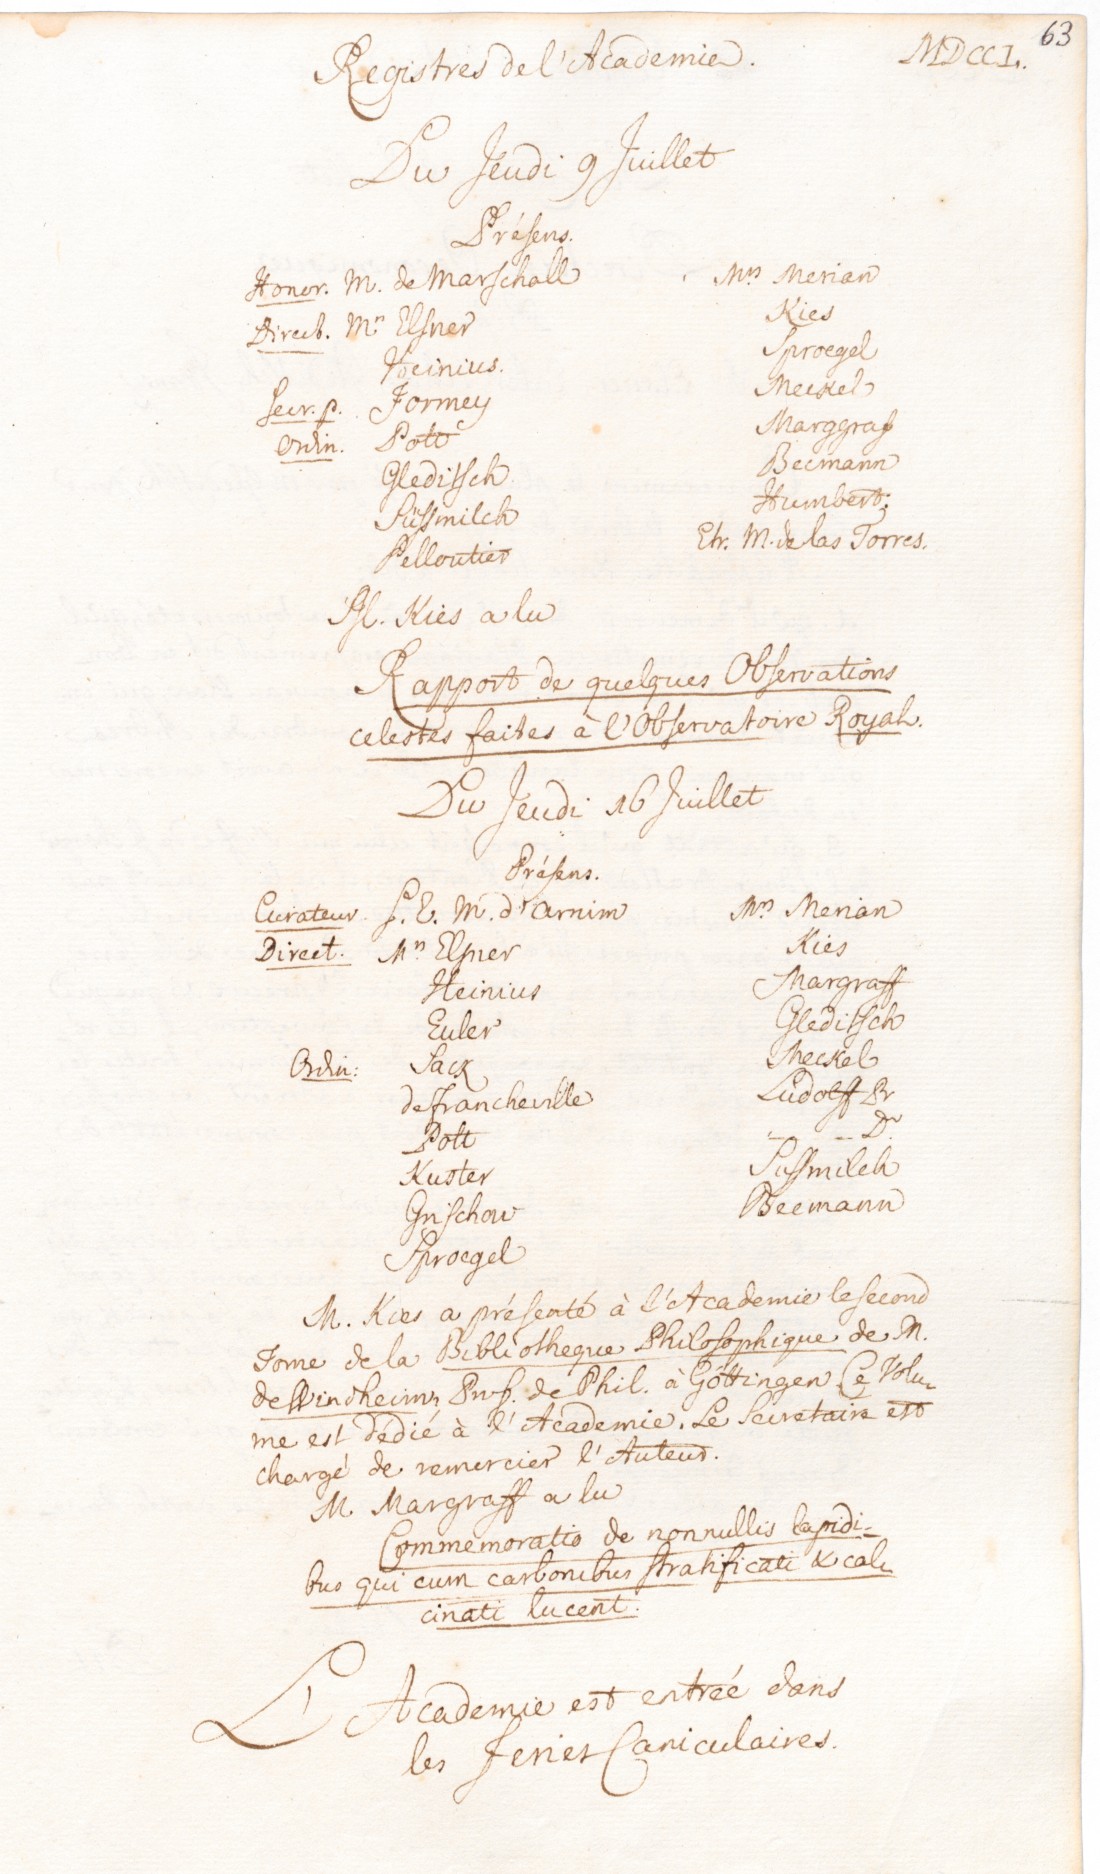 63
Registres de l'Academie. MDCCL.
Du Jeudi 9 Juillet
Présens.
Honor. M. de Marschall
Direct. Mrs Elsner
Heinius.
Secr. p. Formey
Ordin. Pott
Gleditsch
Süssmilch
Pelloutier
Mrs Merian
Kies
Sproegel
Meckel
Marggraf
Becmann
Humbert.
Etr. M. de las Torres.
M. Kies a lu
Rapport de quelques Observations
celestes faites à l'Observatoire Royal.
Du Jeudi 16 Juillet
Présens.
Curateur. S. E. M. d'Arnim
Direct. Mrs Elsner
Heinius
Euler
Ordin: Sack
de Francheville
Pott
Kuster
Grischow
Sproegel
Mrs Merian
Kies
Margraff
Gleditsch
Meckel
Ludolff Pr
- - - Dr
Sussmilch
Becmann
M. Kies a présenté à l'Academie le second
Tome de la Bibliotheque Philosophique de M.
de Windheim, Prof. de Phil. à Göttingen. Ce Volu-
me est dédié à l'Académie. Le Secretaire est
chargé de remercier l'Auteur.
M. Margraff a lu
Commemoratio de nonnullis lapidi-
bus qui cum carbonibus stratificati & cal-
cinati lucent.
L'Academie est entrée dans
les Feries Caniculaires.